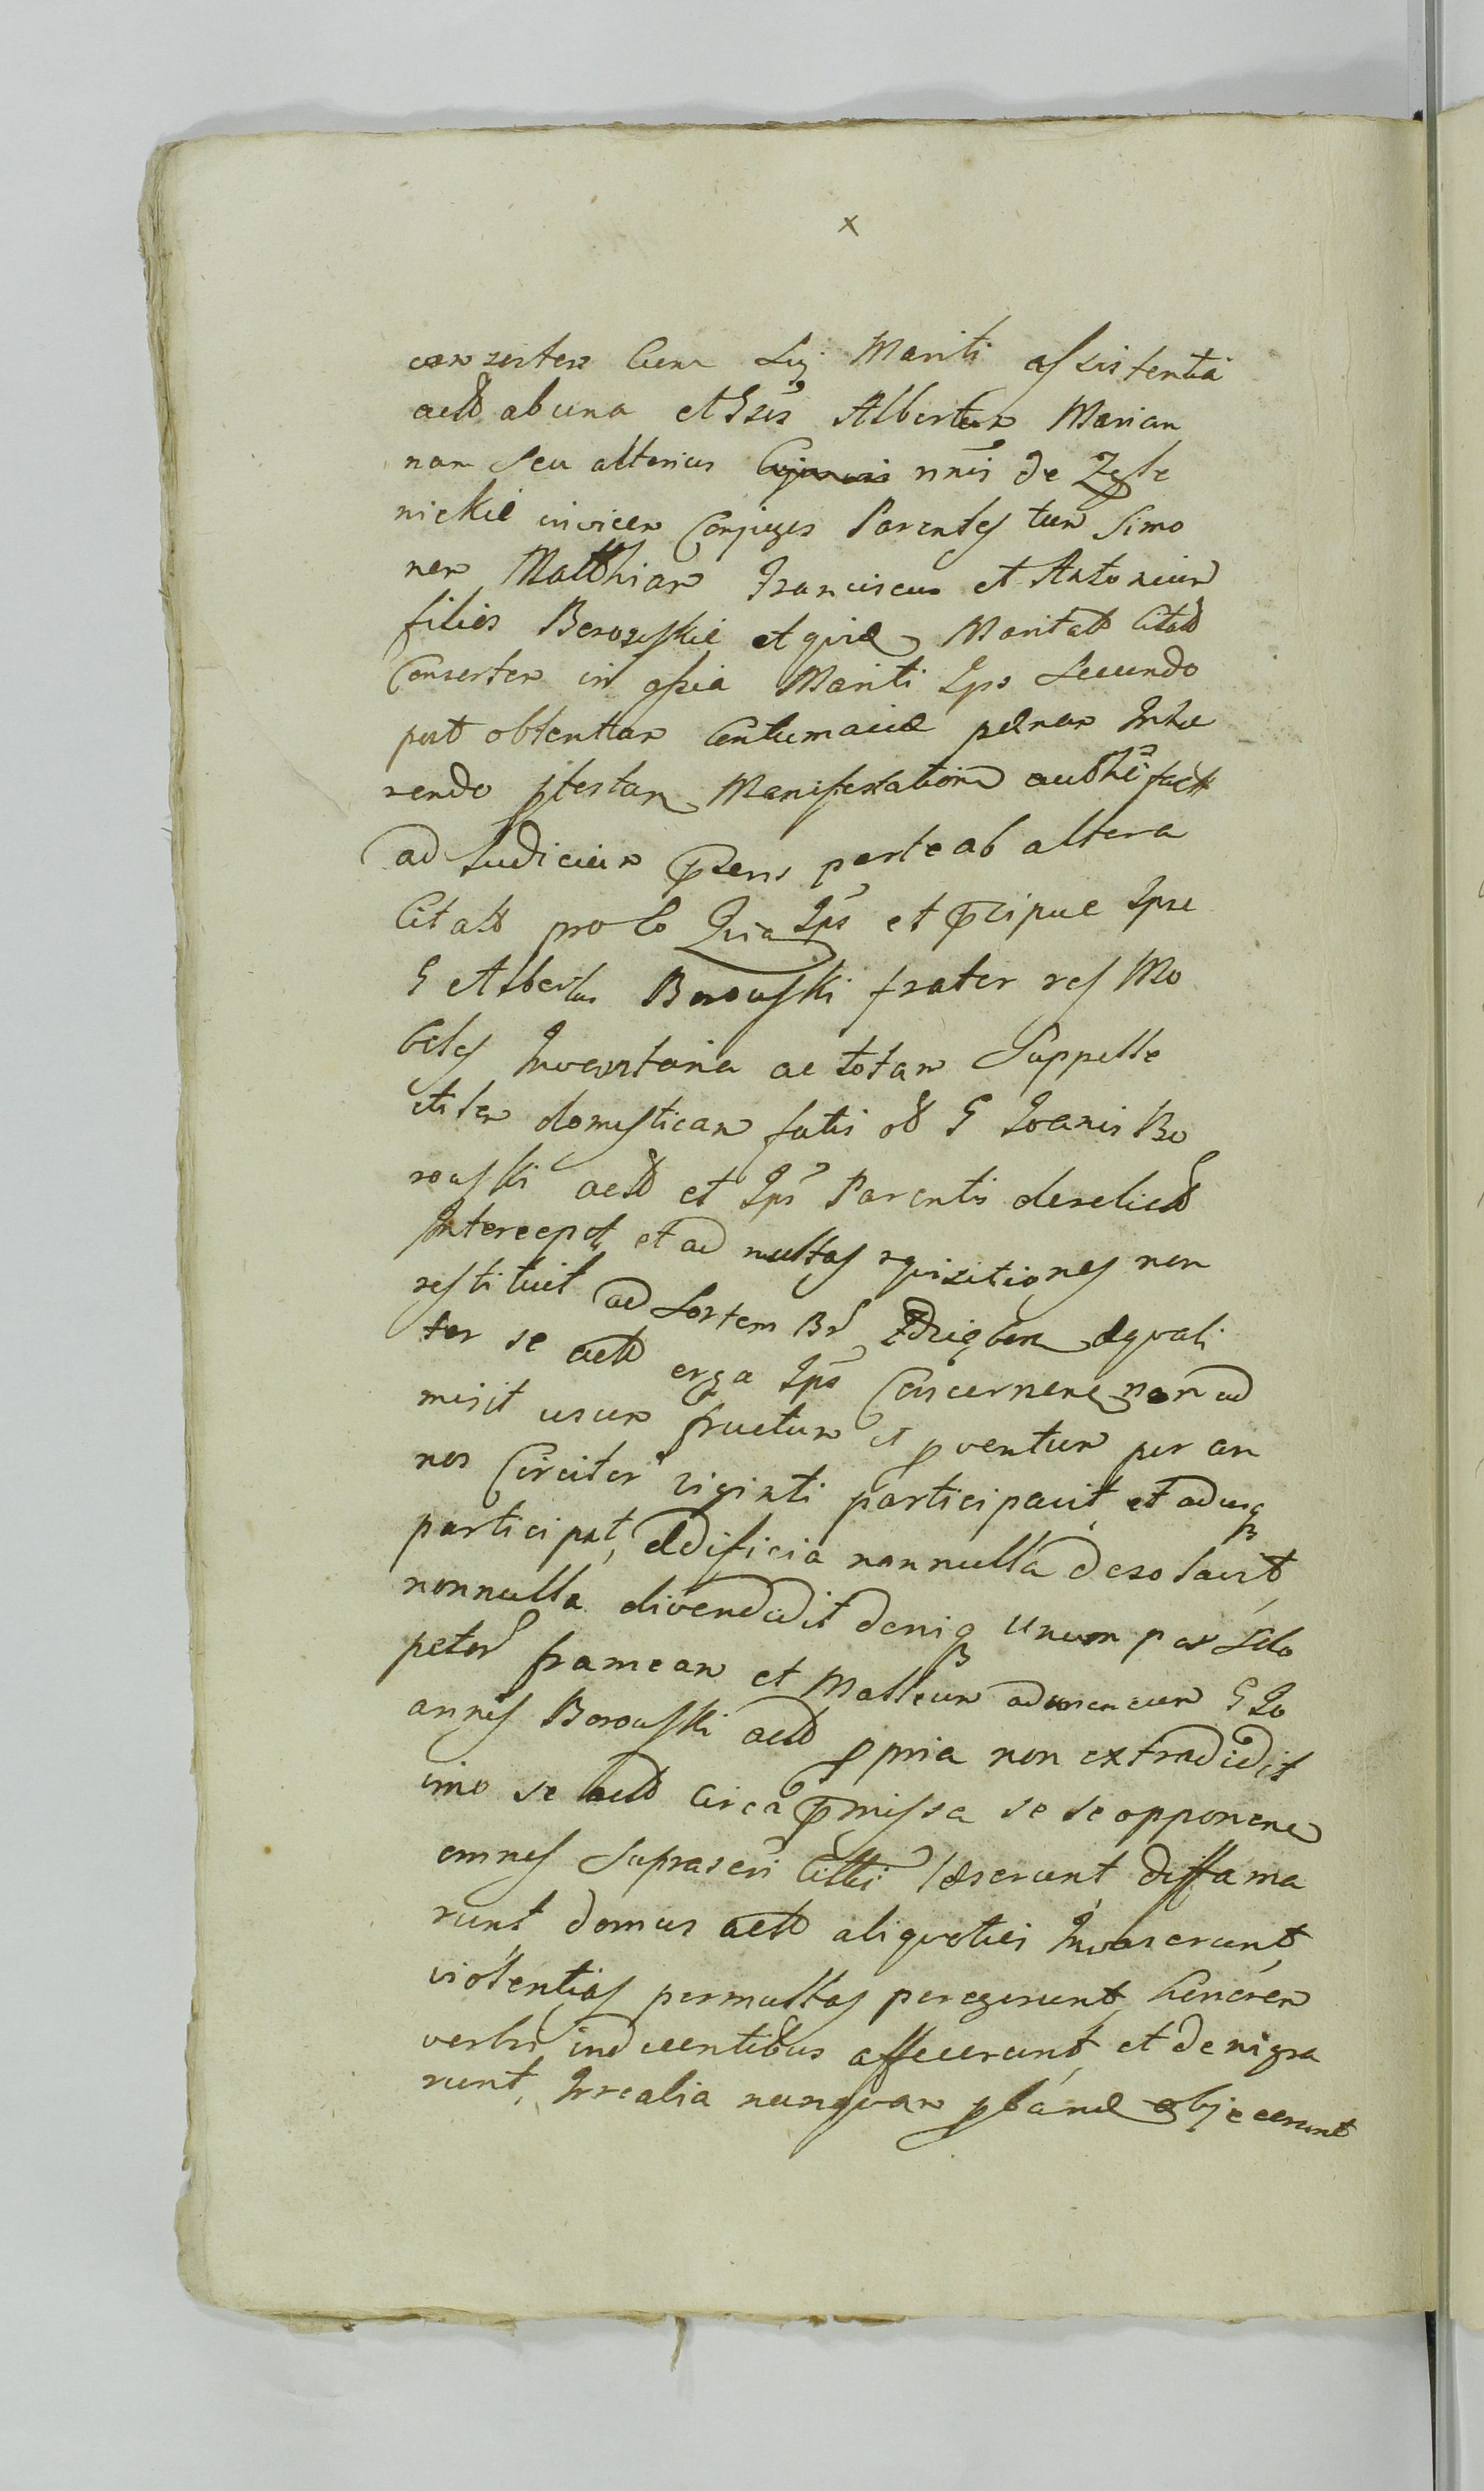 x
consortem Cum Sui Mariti assistentia
actd ab una et Gsis Albertum Marian
nam seu alterius nnis de Zgle
nickie invicem Conjuges Parentes tum Simo
nem Matthiam Franciscum et Antonium
filios Borowskie et qvid Maritatt Citatt
Consortem in assia Mariti Ips Secundo
post obtentam Contumaciae paenam Inhae
rendo ptestam Manifestationi authi factt
ad Judicium psens parte ab altera
Citatt pro eo Quia Ips et pcipue Ipse
G Albertus Borowski frater res Mo
biles Inventaria ac totam Suppelle
ctilem domesticam fatis od G Joanis Bo
rowski actd et Ips Parentis derelictd
Intercepit et ad multas rqvisitiones non
restituit ad Sortem Bd aeqvali
ter se actd erga Ips Concernene non ad
misit usum fructum et pventum per an
nos Circiter viginti participavit, et adusq
participat, aedificia nonnulla desolavit,
nonnulla divendidit deniq unum par Sclo
petod frameam et Malleum G Jo
annis Borowski actd ppria non extradidit
imo se actd circa pmissa se se opponene
omnes suprascri Citti laeserunt, diffama
runt domus actd aliqvoties Invaserunt,
violentias permultas peregerunt, honorem
verbis indecentibus affecerunt, et denigra
runt, Irrealia nunqvam pbandae objecerunt